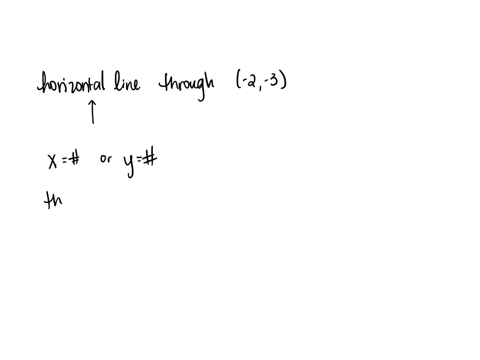 horizontal line through (-2,-3)
x=# or y=#
th